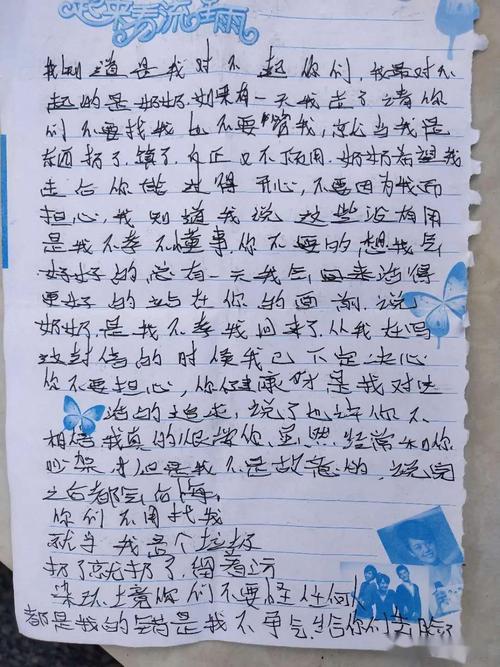 我知道是我对不起你们,我最对不
起的是奶奶.如果有一天我走了请你
们不要找我也不要管我,就当我是
东西扔了.反正又不值用.奶奶希望我
走后你能过得开心,不要因为我而
担心,我知道我说这些没有用
是我不孝不懂事.你不要的想我气
好好的,总有一天我气回来活得
更好的站在你的面前.说
奶奶.是我不孝我回来了.从我在写
这封信的时侯我已下定决心
你不要担心,你健康才是我对
活的追求,说了也许你不
相信我真的很爱你.虽然.经常和你
吵架.但是我不是故意的,说完
之后都会后悔.
你们不用找我
就当我是个垃圾
扔了就扔了,留着污
染环境你们不要怪任何人
都是我的错是我不争气给你们丢脸了